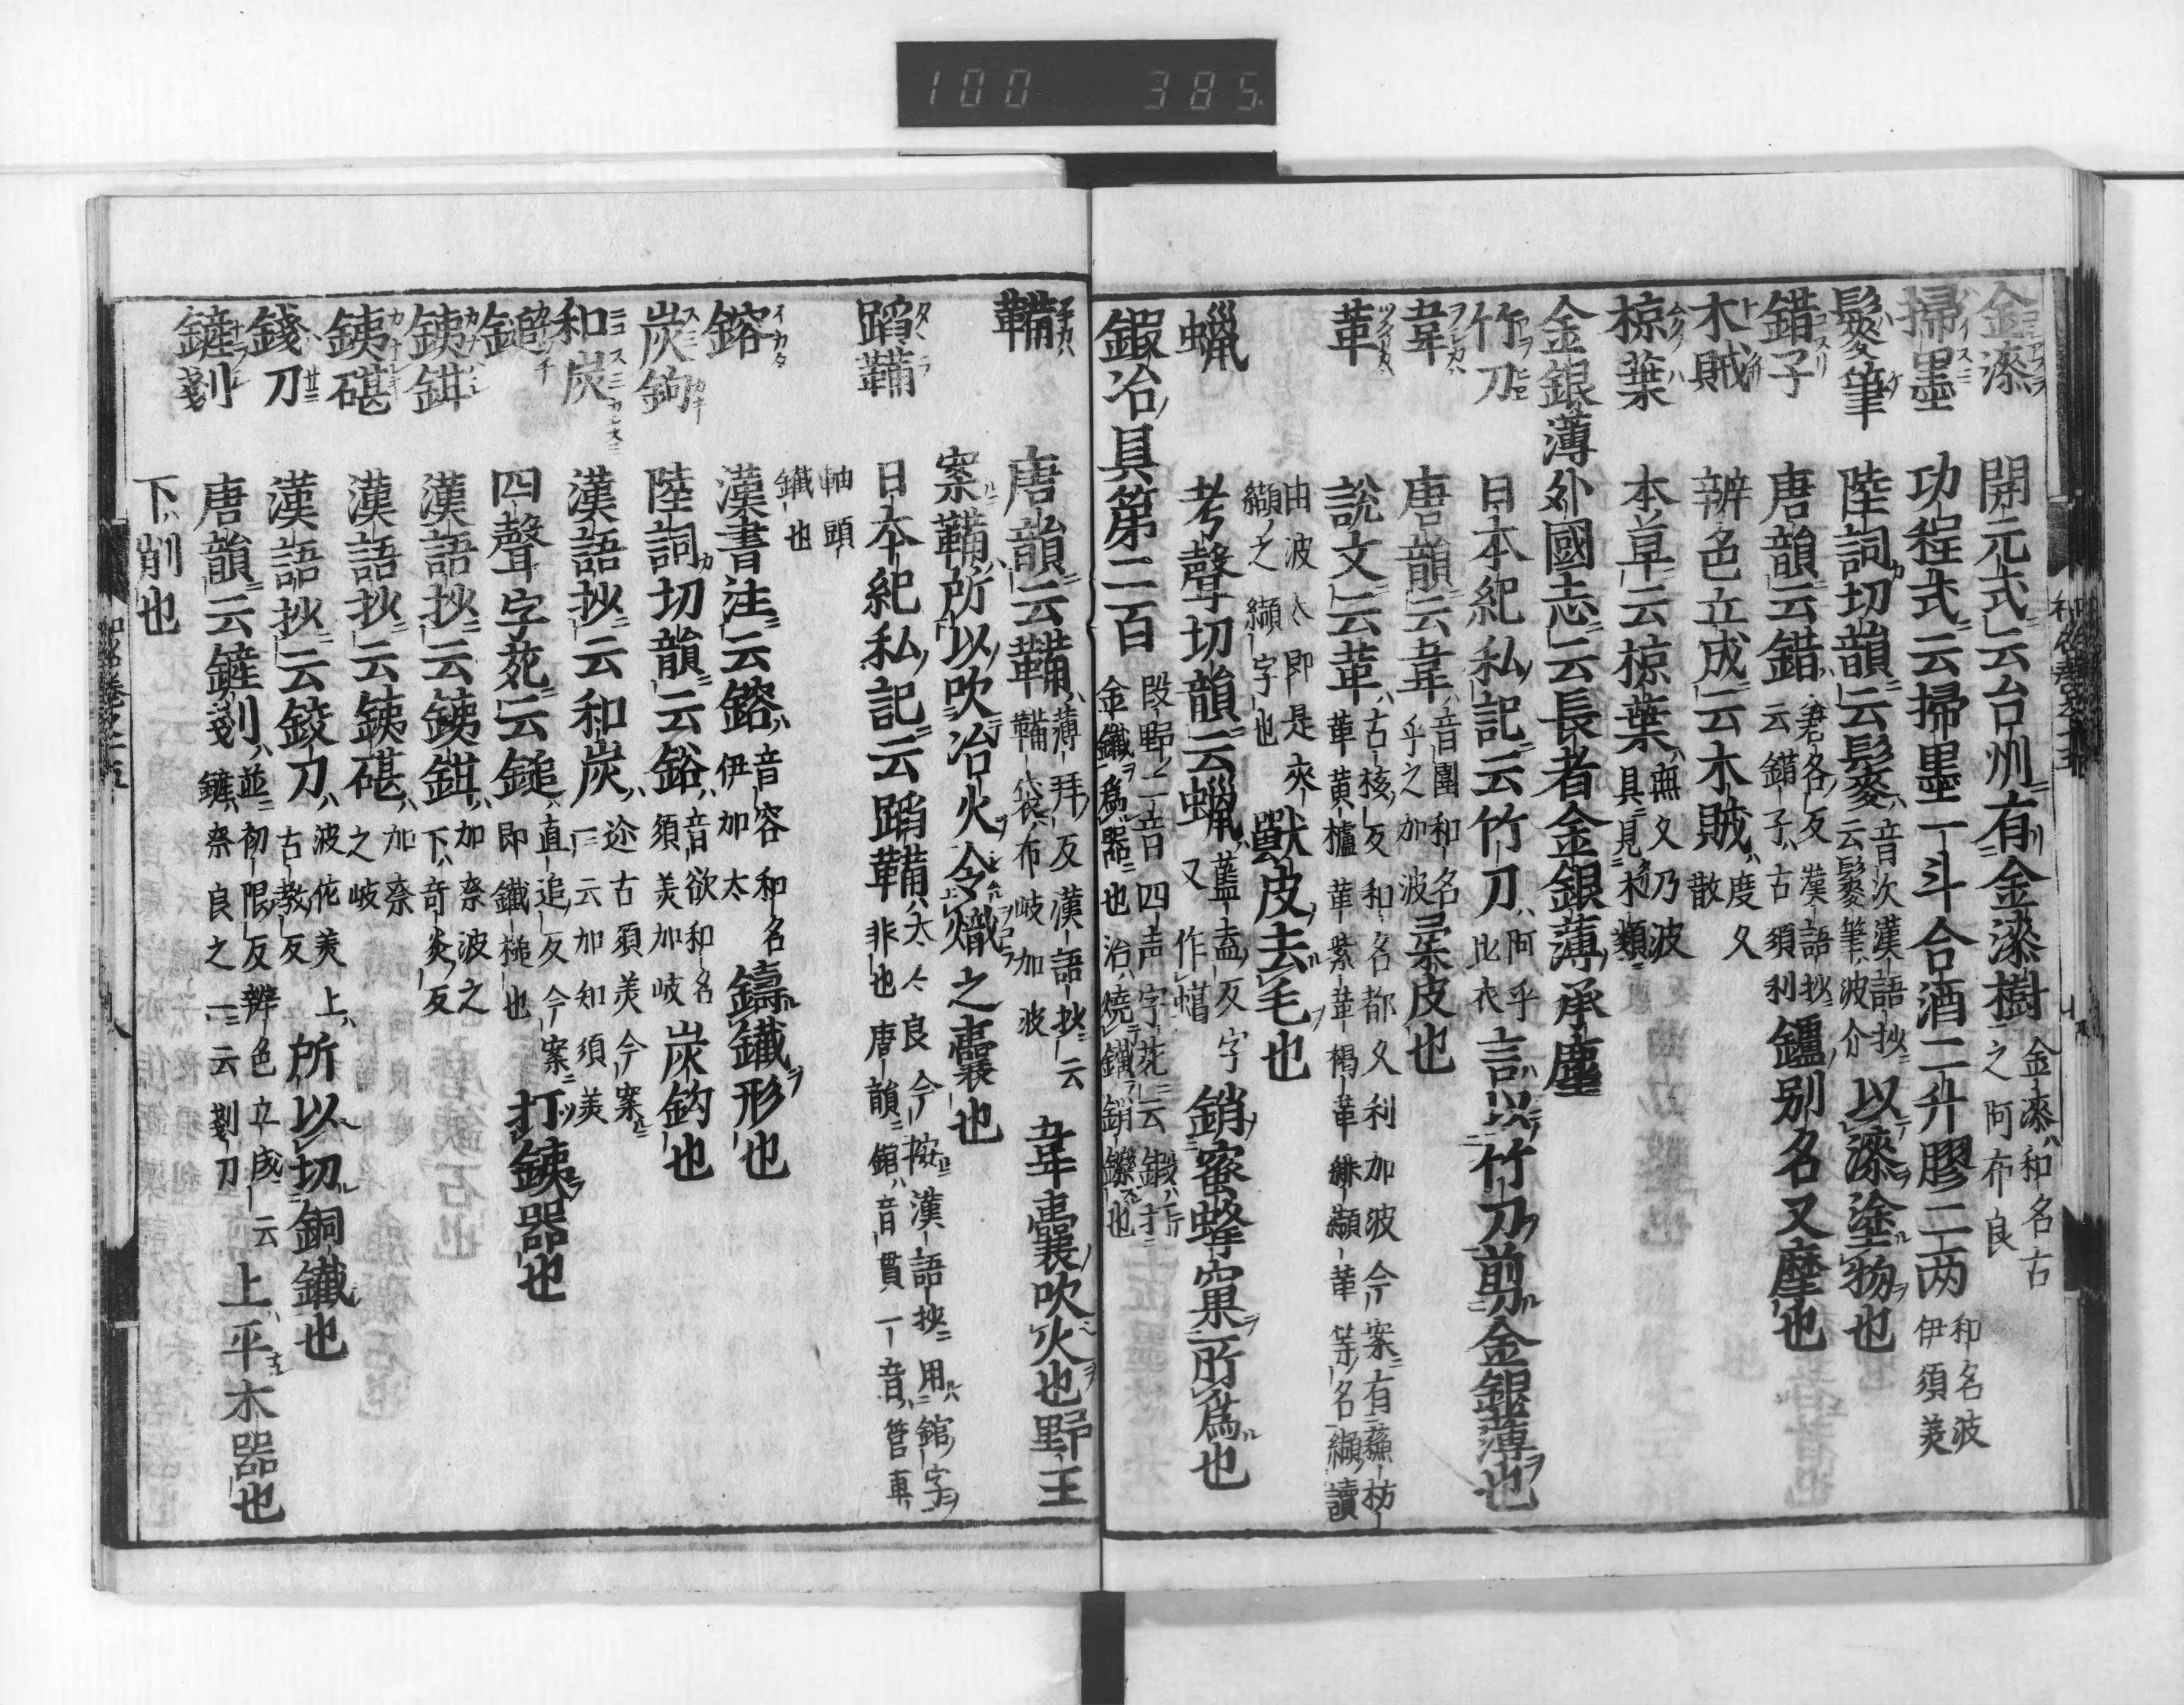 100 385
金漆 開元式云台州有金漆樹 金漆和名古之阿布良
掃墨 功程式云掃墨一斗合酒二升膠二両 和名波伊須美
髹筆 陸詞切韻云髹 音次漢語抄云髹筆波介 以漆塗物也
錯子 唐韻云錯 漢語抄云錯子古須利 鑪別名又摩也
木賊 辨色立成云木賊 度久散
椋葉 本草云椋葉 無久乃波具見木類
金銀薄 外國志云長者金銀薄承塵
竹刀 日本紀私記云竹刀 阿乎比衣 言以竹刀剪金銀薄也
韋 唐韻云韋 音圍和名乎之加波 柔皮也
革 説文云革 古核反和名都久利加波今案有蘇枋革黄櫨革紫革褐革緋纈革等名纈讀
由波太即是夾纈之纈字也 獸皮去毛也
蝋 考聲切韻云蝋 藍盍反字又作蠟 銷蜜蜂窠所爲也
鍛冶具第二百 段野二音四声字苑云鍛打金鐵爲器也冶焼鐵銷鑠也
鞴 唐韻云鞴 薄拜反漢語抄云鞴袋布岐加波 韋囊吹火也野王
案鞴所以吹冶火令熾之囊也
蹈鞴 日本紀私記云蹈鞴 太々良今按漢語抄用錧字非也唐韻錧音貫一音管車
軸頭鐵也
鎔 漢書注云鎔 音容和名伊加太 鑄鐵形也
炭鉤 陸詞切韻云鋊 音欲和名須美加岐 炭鉤也
和炭 漢語抄云和炭 迩古須美今案一云加知須美
鎚 四聲字苑云鎚 直追反今案即鐵槌也 打鐵器也
鐵鉗 漢語抄云鐵鉗 加奈波之下奇炎反
鐵碪 漢語抄云鐵碪 加奈之岐
錢刀 漢語抄云鉸刀 波佐美上古教反 所以切銅鐵也
鏟剗 唐韻云鏟剗 並初限反辨色立成云鏟奈良之一云剗刀 上平木器也
下削也